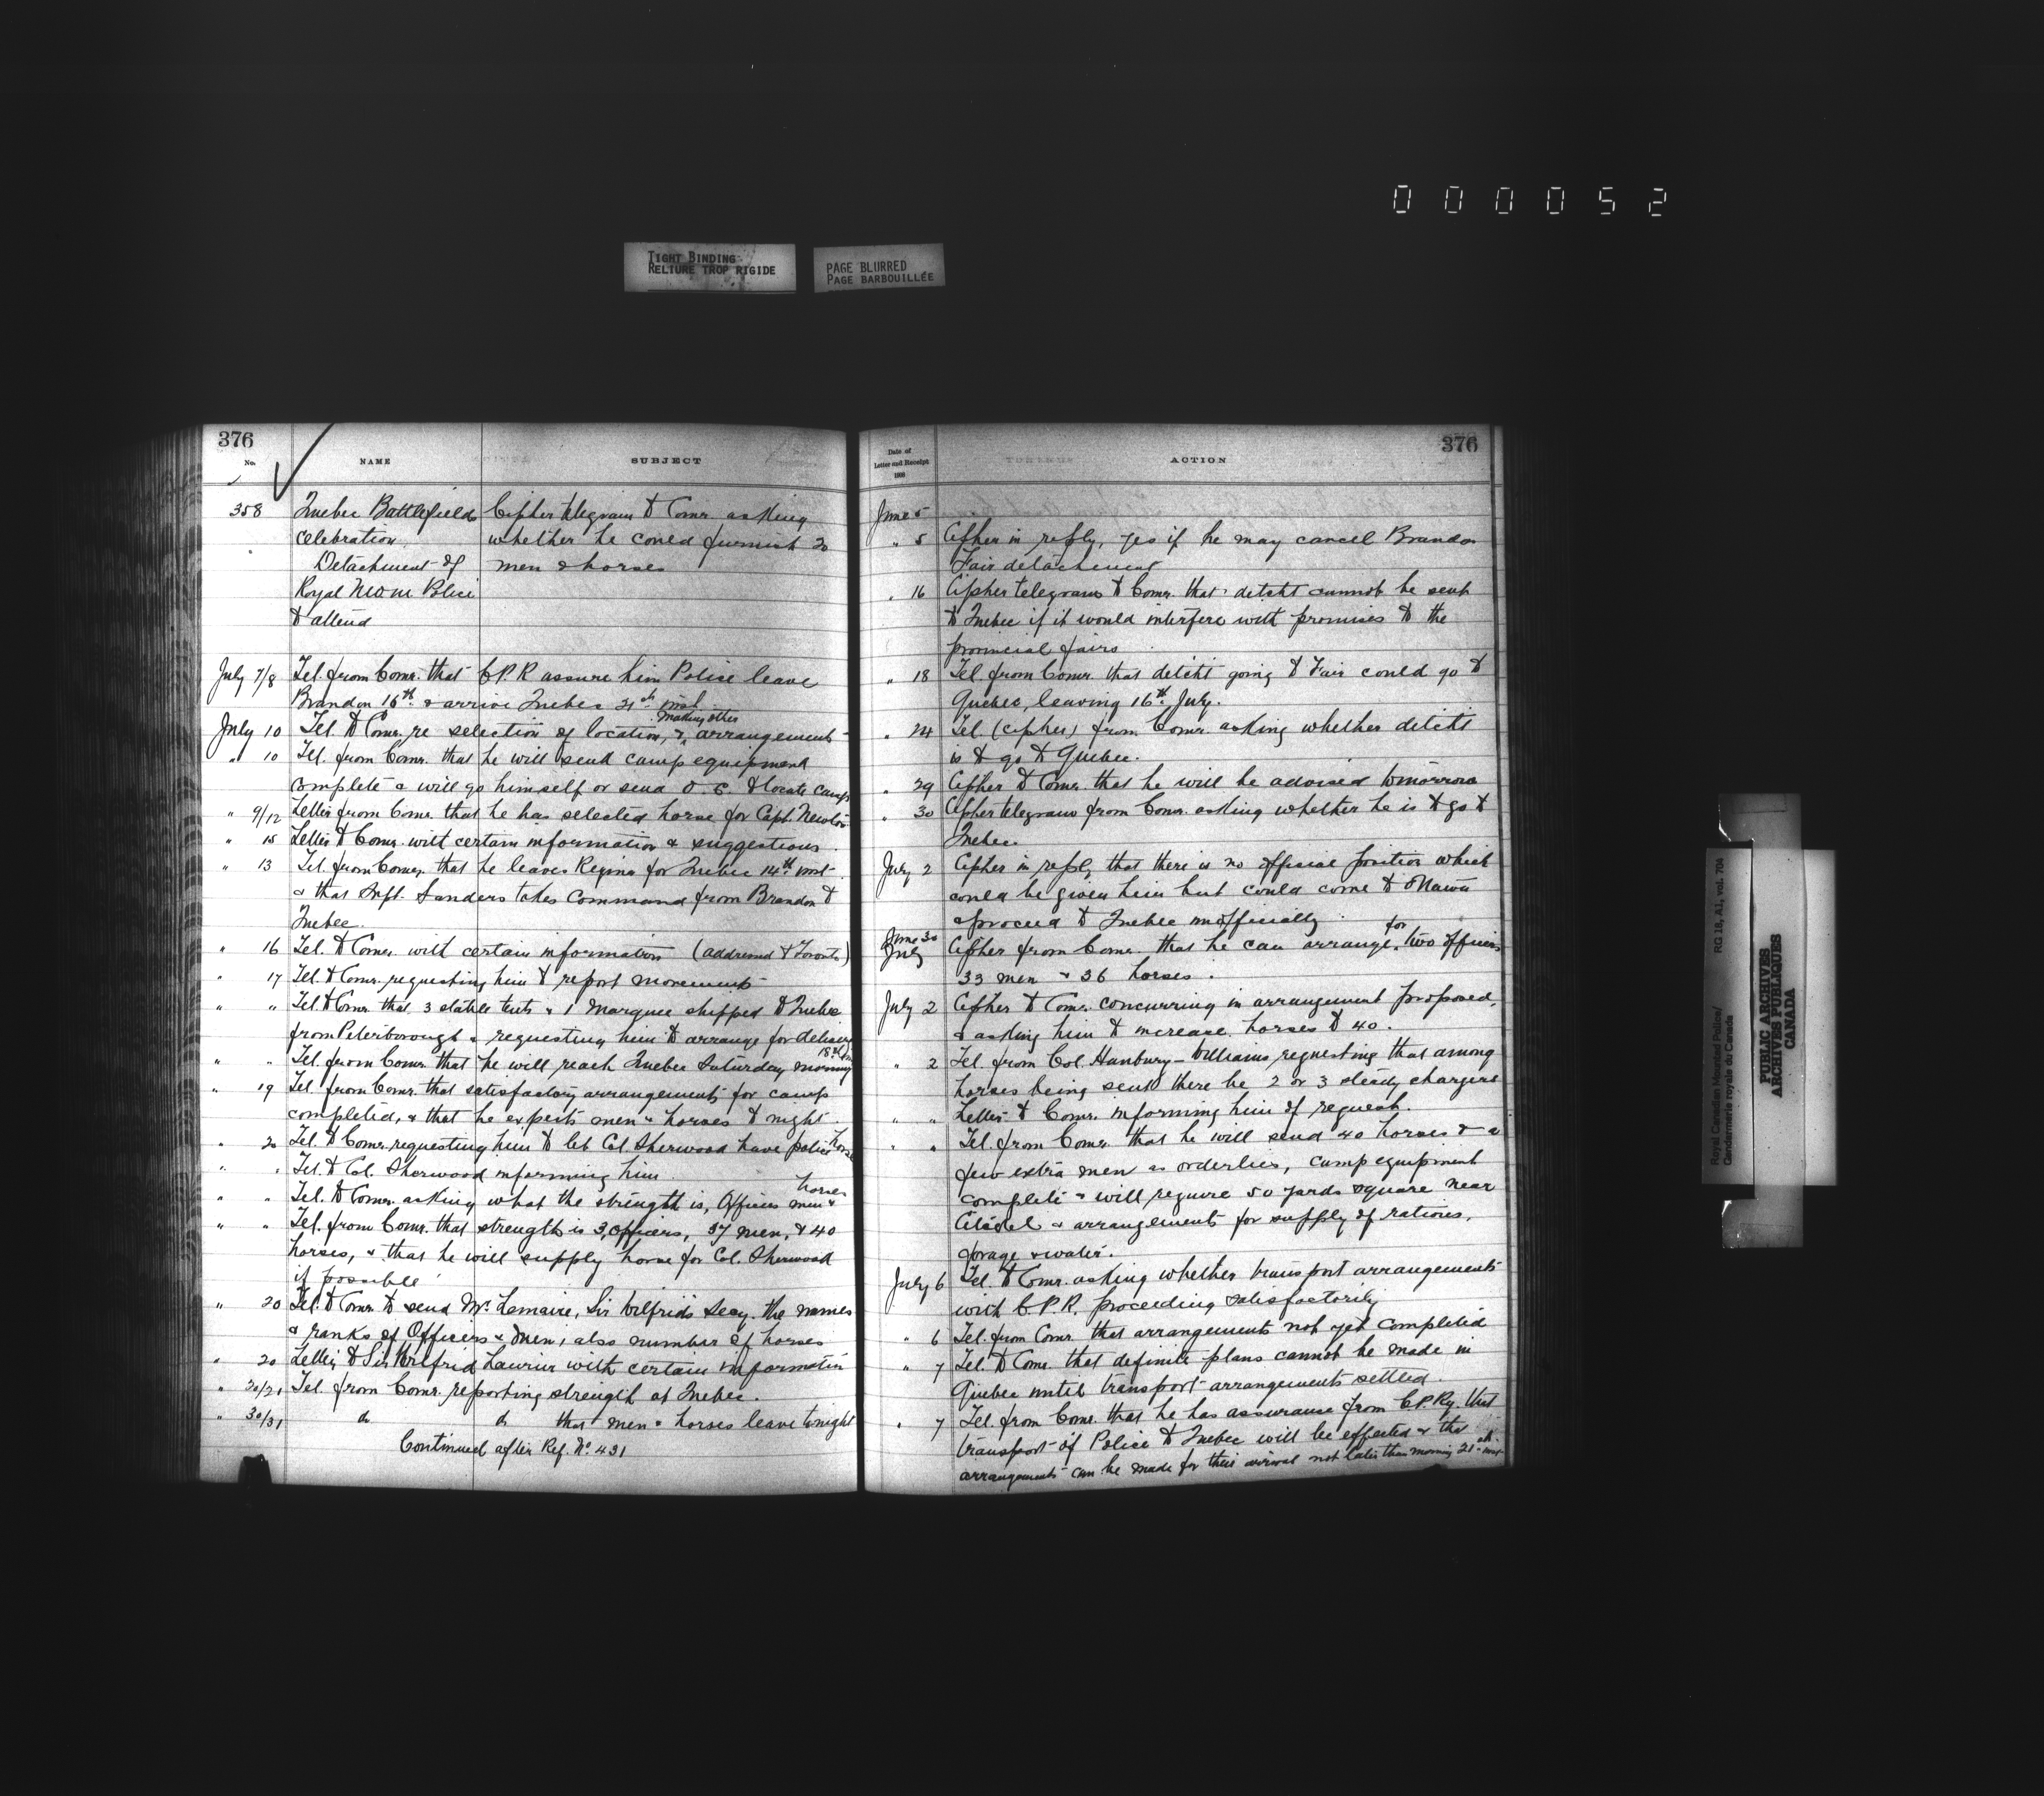 000052
TIGHT BINDING
RELIURE TROP RIGIDE
PAGE BLURRED
PAGE BARBOUILLÉE
376
No.
NAME
SUBJECT
358
Quebec Battlefields
celebration
Detachment of
Royal N W M Police
to attend
Cipher telegram to Comr. asking
whether he could furnish 20
men & horses
July 7/8 Tel. from Comr. that C.P.R assure him Police leave
Brandon 16th & arrive Quebec 21st inst.
July 10 Tel. to Comr. re selection of location, & making other arrangements
" 10 Tel. from Comr. that he will send camp equipment
complete & will go himself or send O.C. to locate camp
" 9/12 Letter from Comr. that he has selected horse for Capt. Newton
" 15 Letter to Comr. with certain information & suggestions.
" 13 Tel. from Comr. that he leaves Regina for Quebec 14th inst.
& that Supt. Sanders takes Command from Brandon to
Quebec.
" 16 Tel. to Comr. with certain information (addressed to Toronto)
" 17 Tel. to Comr. requesting him to report movements
" " Tel. to Comr. that 3 stable tents & 1 Marquee shipped to Quebec
from Peterborough & requesting him to arrange for delivery
" " Tel. from Comr. that he will reach Quebec Saturday morning 18th
" 19 Tel. from Comr. that satisfactory arrangements for camp
completed, & that he expects men & horses to night
" 20 Tel. to Comr. requesting him to let Col. Sherwood have police horse
" " Tel. to Col. Sherwood informing him
" " Tel. to Comr. asking what the strength is, Officers men & horses
" " Tel. from Comr. that strength is 3 Officers, 37 men, & 40
horses, & that he will supply horse for Col. Sherwood
if possible
" 20 Tel. to Comr. to send Mr. Lemaire, Sir Wilfrid's Secy. the names
& ranks of Officers & Men, also number of horses
" 20 Letter to Sir Wilfrid Laurier with certain information
" 20/21 Tel. from Comr. reporting strength at Quebec.
" 30/31 do do that men & horses leave tonight
Continued after Ref. No. 431
376
Date of
Letter and Receipt
1908
ACTION
June 5
" 5 Cipher in reply, yes if he may cancel Brandon
Fair detachment
" 16 Cipher telegram to Comr. that detcht cannot be sent
to Quebec if it would interfere with promises to the
provincial fairs
" 18 Tel. from Comr. that detcht going to Fair could go to
Quebec, leaving 16th July.
" 24 Tel. (cipher) from Comr. asking whether detcht
is to go to Quebec.
" 29 Cipher to Comr. that he will be advised tomorrow
" 30 Cipher telegram from Comr. asking whether he is to go to
Quebec
July 2 Cipher in reply, that there is no official position which
could be given him but could come to Ottawa
& proceed to Quebec unofficially.
June 30
July
Cipher from Comr. that he can arrange for two officers
33 men & 36 horses.
July 2 Cipher to Comr. concurring in arrangement proposed,
& asking him to increase horses to 40.
" 2 Tel. from Col. Hanbury-Williams requesting that among
horses being sent there be 2 or 3 steady chargers
" " Letter to Comr. informing him of request.
" " Tel. from Comr. that he will send 40 horses & a
few extra men as orderlies, camp equipment
complete & will require 50 yards square near
Citadel & arrangements for supply of rations,
forage & water.
July 6 Tel. to Comr. asking whether transport arrangements
with C.P.R. proceeding satisfactorily
" 6 Tel. from Comr. that arrangements not yet completed
" 7 Tel. to Comr. that definite plans cannot be made in
Quebec until transport arrangements settled.
" 7 Tel. from Comr. that he has assurance from C.P.Ry. that
transport of Police to Quebec will be effected & that
arrangements can be made for their arrival not later than morning 21st inst.
Royal Canadian Mounted Police/
Gendarmerie royale du Canada
RG 18, A1, vol. 704
PUBLIC ARCHIVES
ARCHIVES PUBLIQUES
CANADA